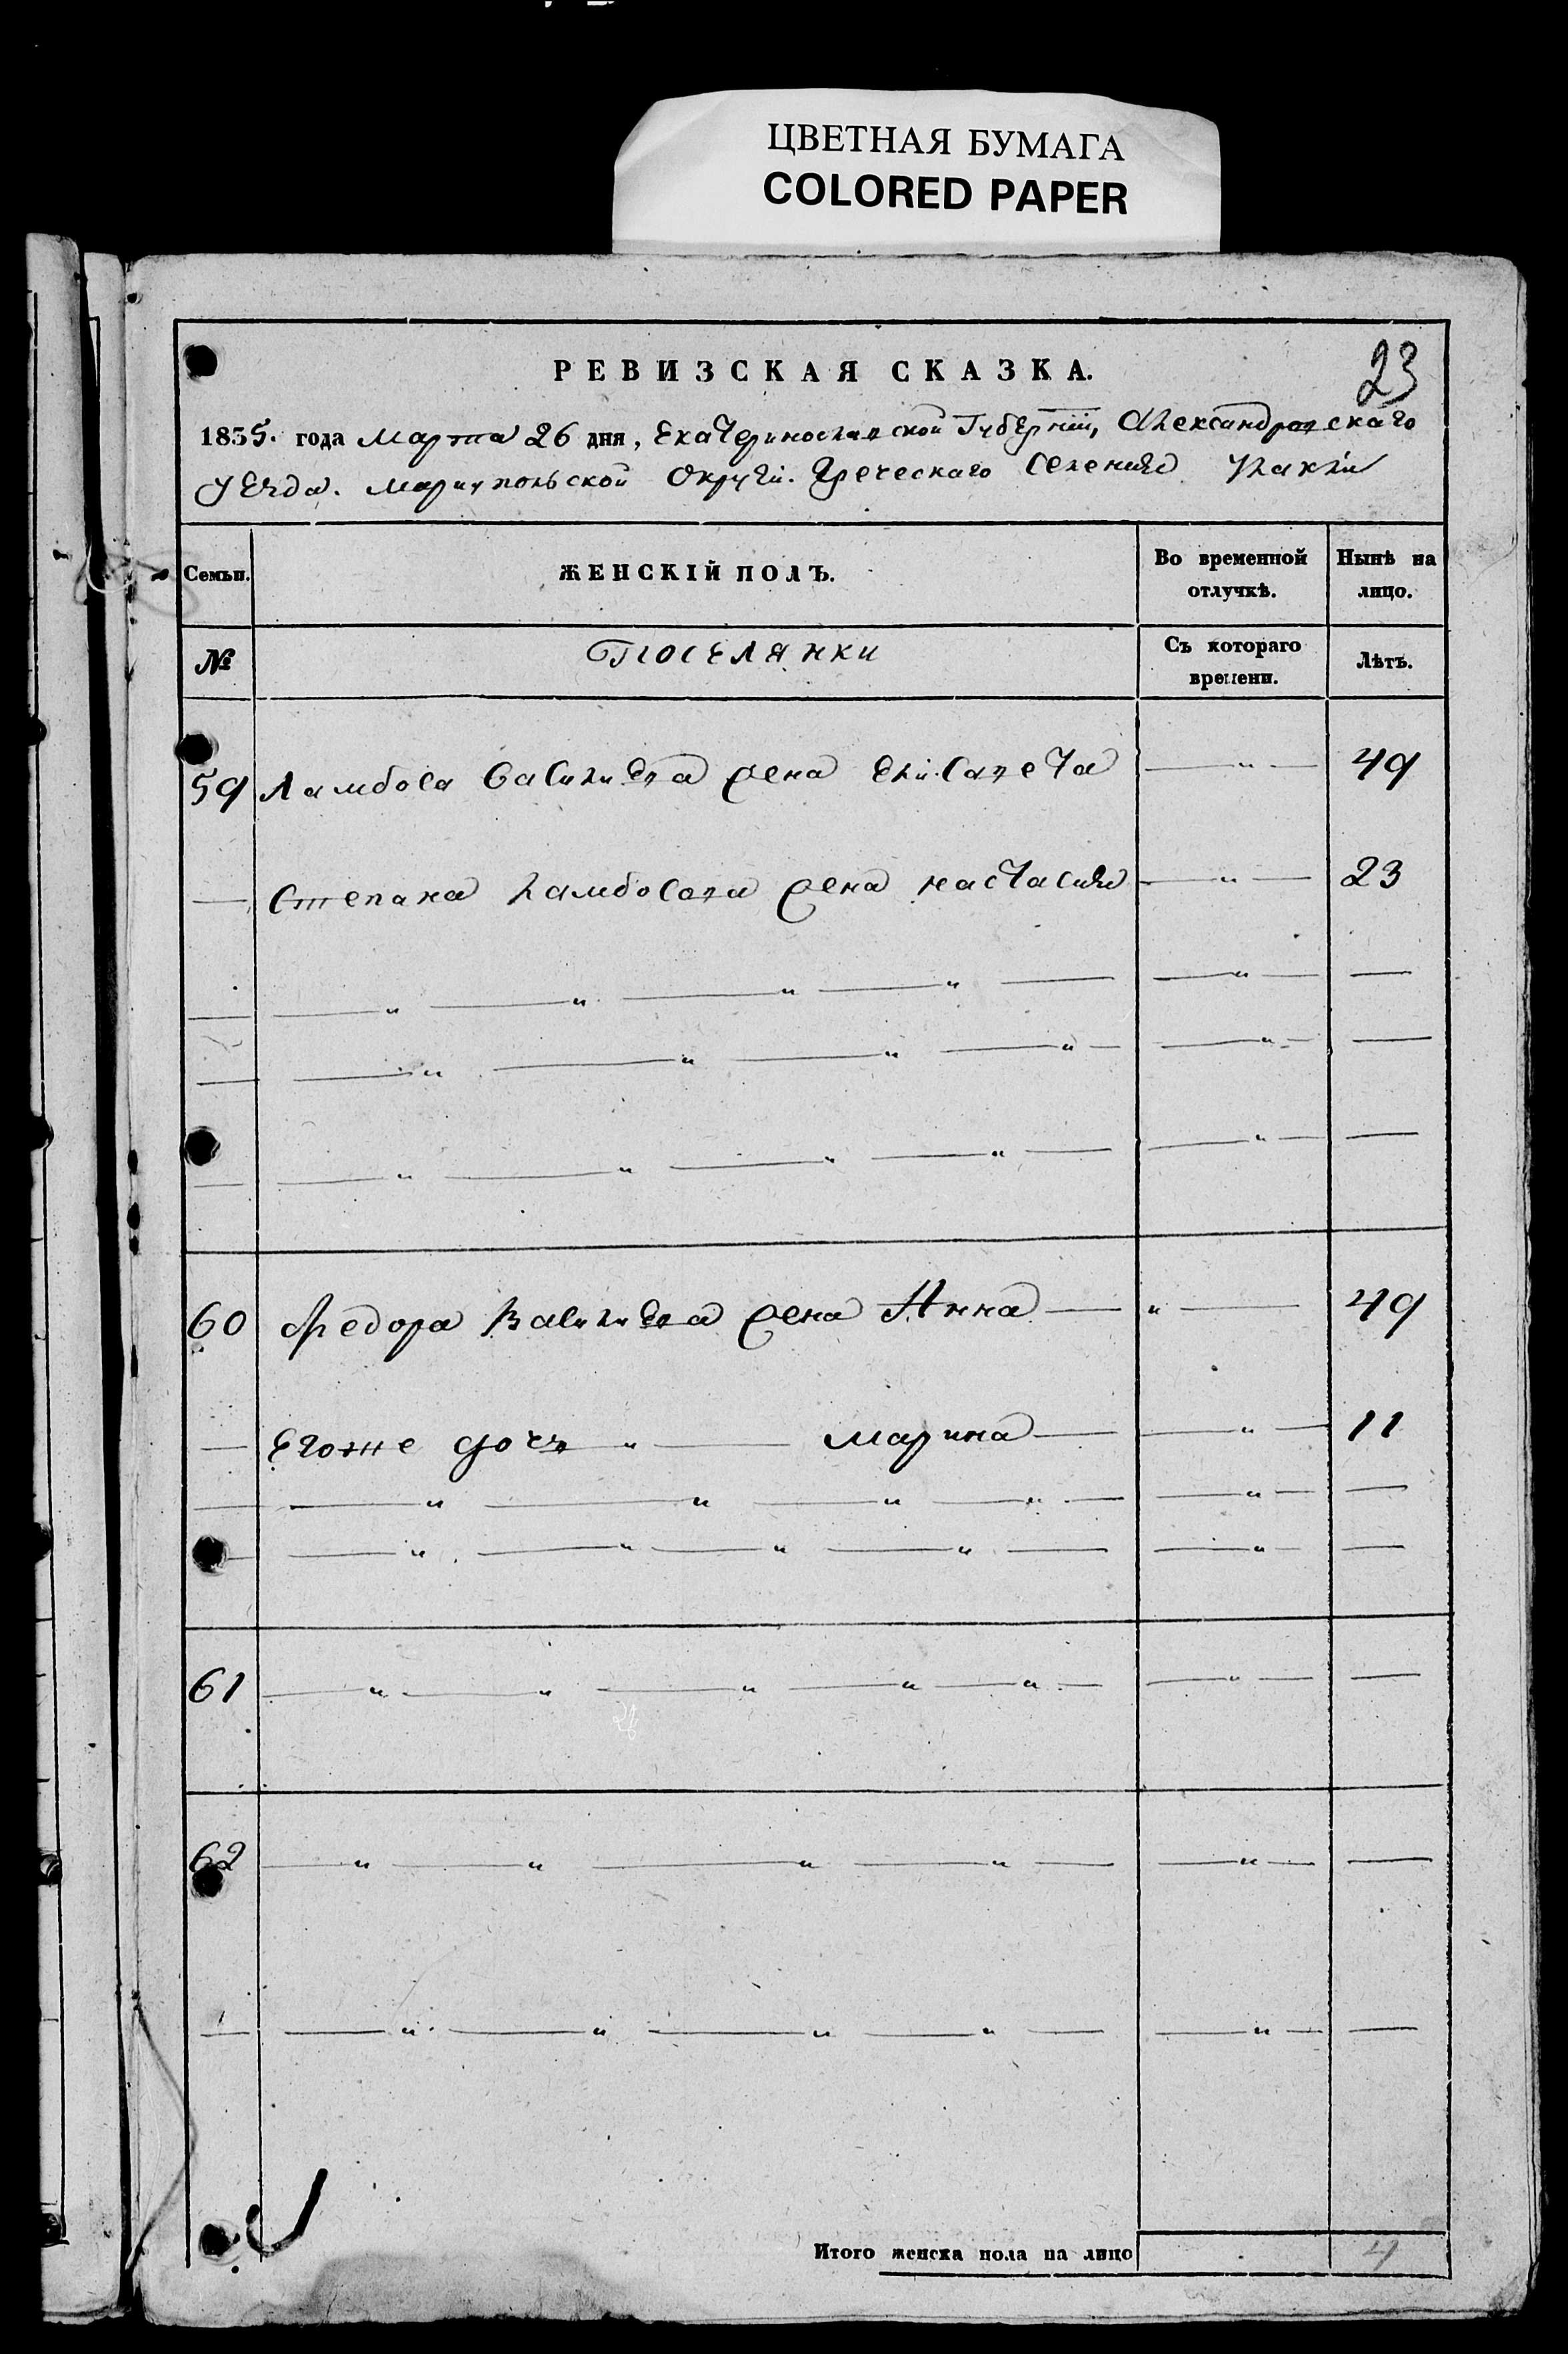 ЦВЕТНАЯ БУМАГА
COLORED PAPER
РЕВИЗСКАЯ СКАЗКА.
23
1835. года Марта 26 дня, Екатеринославской Губерніи, Александровскаго
уезда. Мариупольской Округи. Греческаго Селения
Семьи.
ЖЕНСКІЙ ПОЛЪ.
Во временной отлучкѣ.
Нынѣ на лицо.
№
Поселянки
Съ котораго времени.
Лѣтъ.
59 Ламбоса Василиева жена Елисавета — " — 49
— Степана Ламбосова жена настасия — " — 23
60 Федора Василиева жена Анна — " — 49
— Егоже дочь — " — марина — " — 11
61
62
Итого женска пола на лицо
4